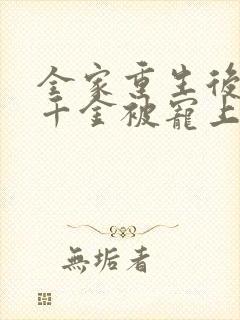 全家重生後
千金被寵上
無垢者